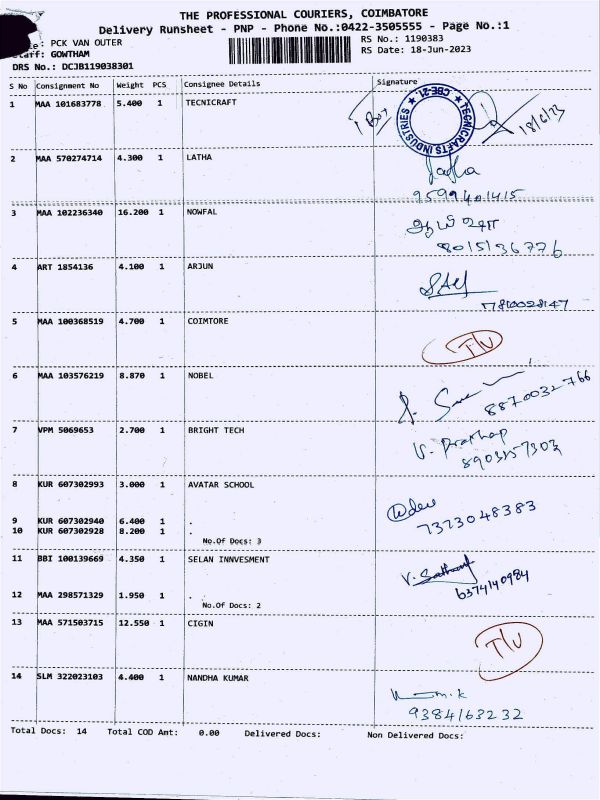 THE PROFESSIONAL COURIERS, COIMBATORE
Delivery Runsheet - PNP - Phone No.:0422-3505555 - Page No.:1
: PCK VAN OUTER
RS No.: 1190383
Staff: GOWTHAM
RS Date: 18-Jun-2023
DRS No.: DCJB119038301
S No Consignment No Weight PCS Consignee Details Signature
1 MAA 101683778 5.400 1 TECNICRAFT
TECNICRAFTS INDUSTRIES ★ CBE-21. ★
18/6/23
2 MAA 570274714 4.300 1 LATHA
Latha
9599401415
3 MAA 102236340 16.200 1 NOWFAL
8015136776
4 ART 1854136 4.100 1 ARJUN
7810028147
5 MAA 100368519 4.700 1 COIMTORE
T/U
6 MAA 103576219 8.870 1 NOBEL
8870032766
7 VPM 5069653 2.700 1 BRIGHT TECH
V. Prathap
8903157303
8 KUR 607302993 3.000 1 AVATAR SCHOOL
7373048383
9 KUR 607302940 6.400 1 .
10 KUR 607302928 8.200 1 .
No.Of Docs: 3
11 BBI 100139669 4.350 1 SELAN INNVESMENT
6374140984
12 MAA 298571329 1.950 1 .
No.Of Docs: 2
13 MAA 571503715 12.550 1 CIGIN
T/U
14 SLM 322023103 4.400 1 NANDHA KUMAR
9384163232
Total Docs: 14 Total COD Amt: 0.00 Delivered Docs: Non Delivered Docs: